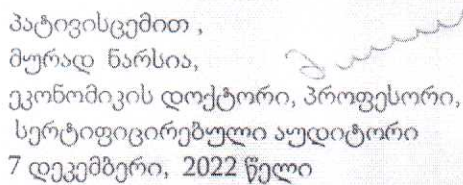 პატივისცემით ,
მურად ნარსია,
ეკონომიკის დოქტორი, პროფესორი,
სერტიფიცირებული აუდიტორი
7 დეკემბერი, 2022 წელი